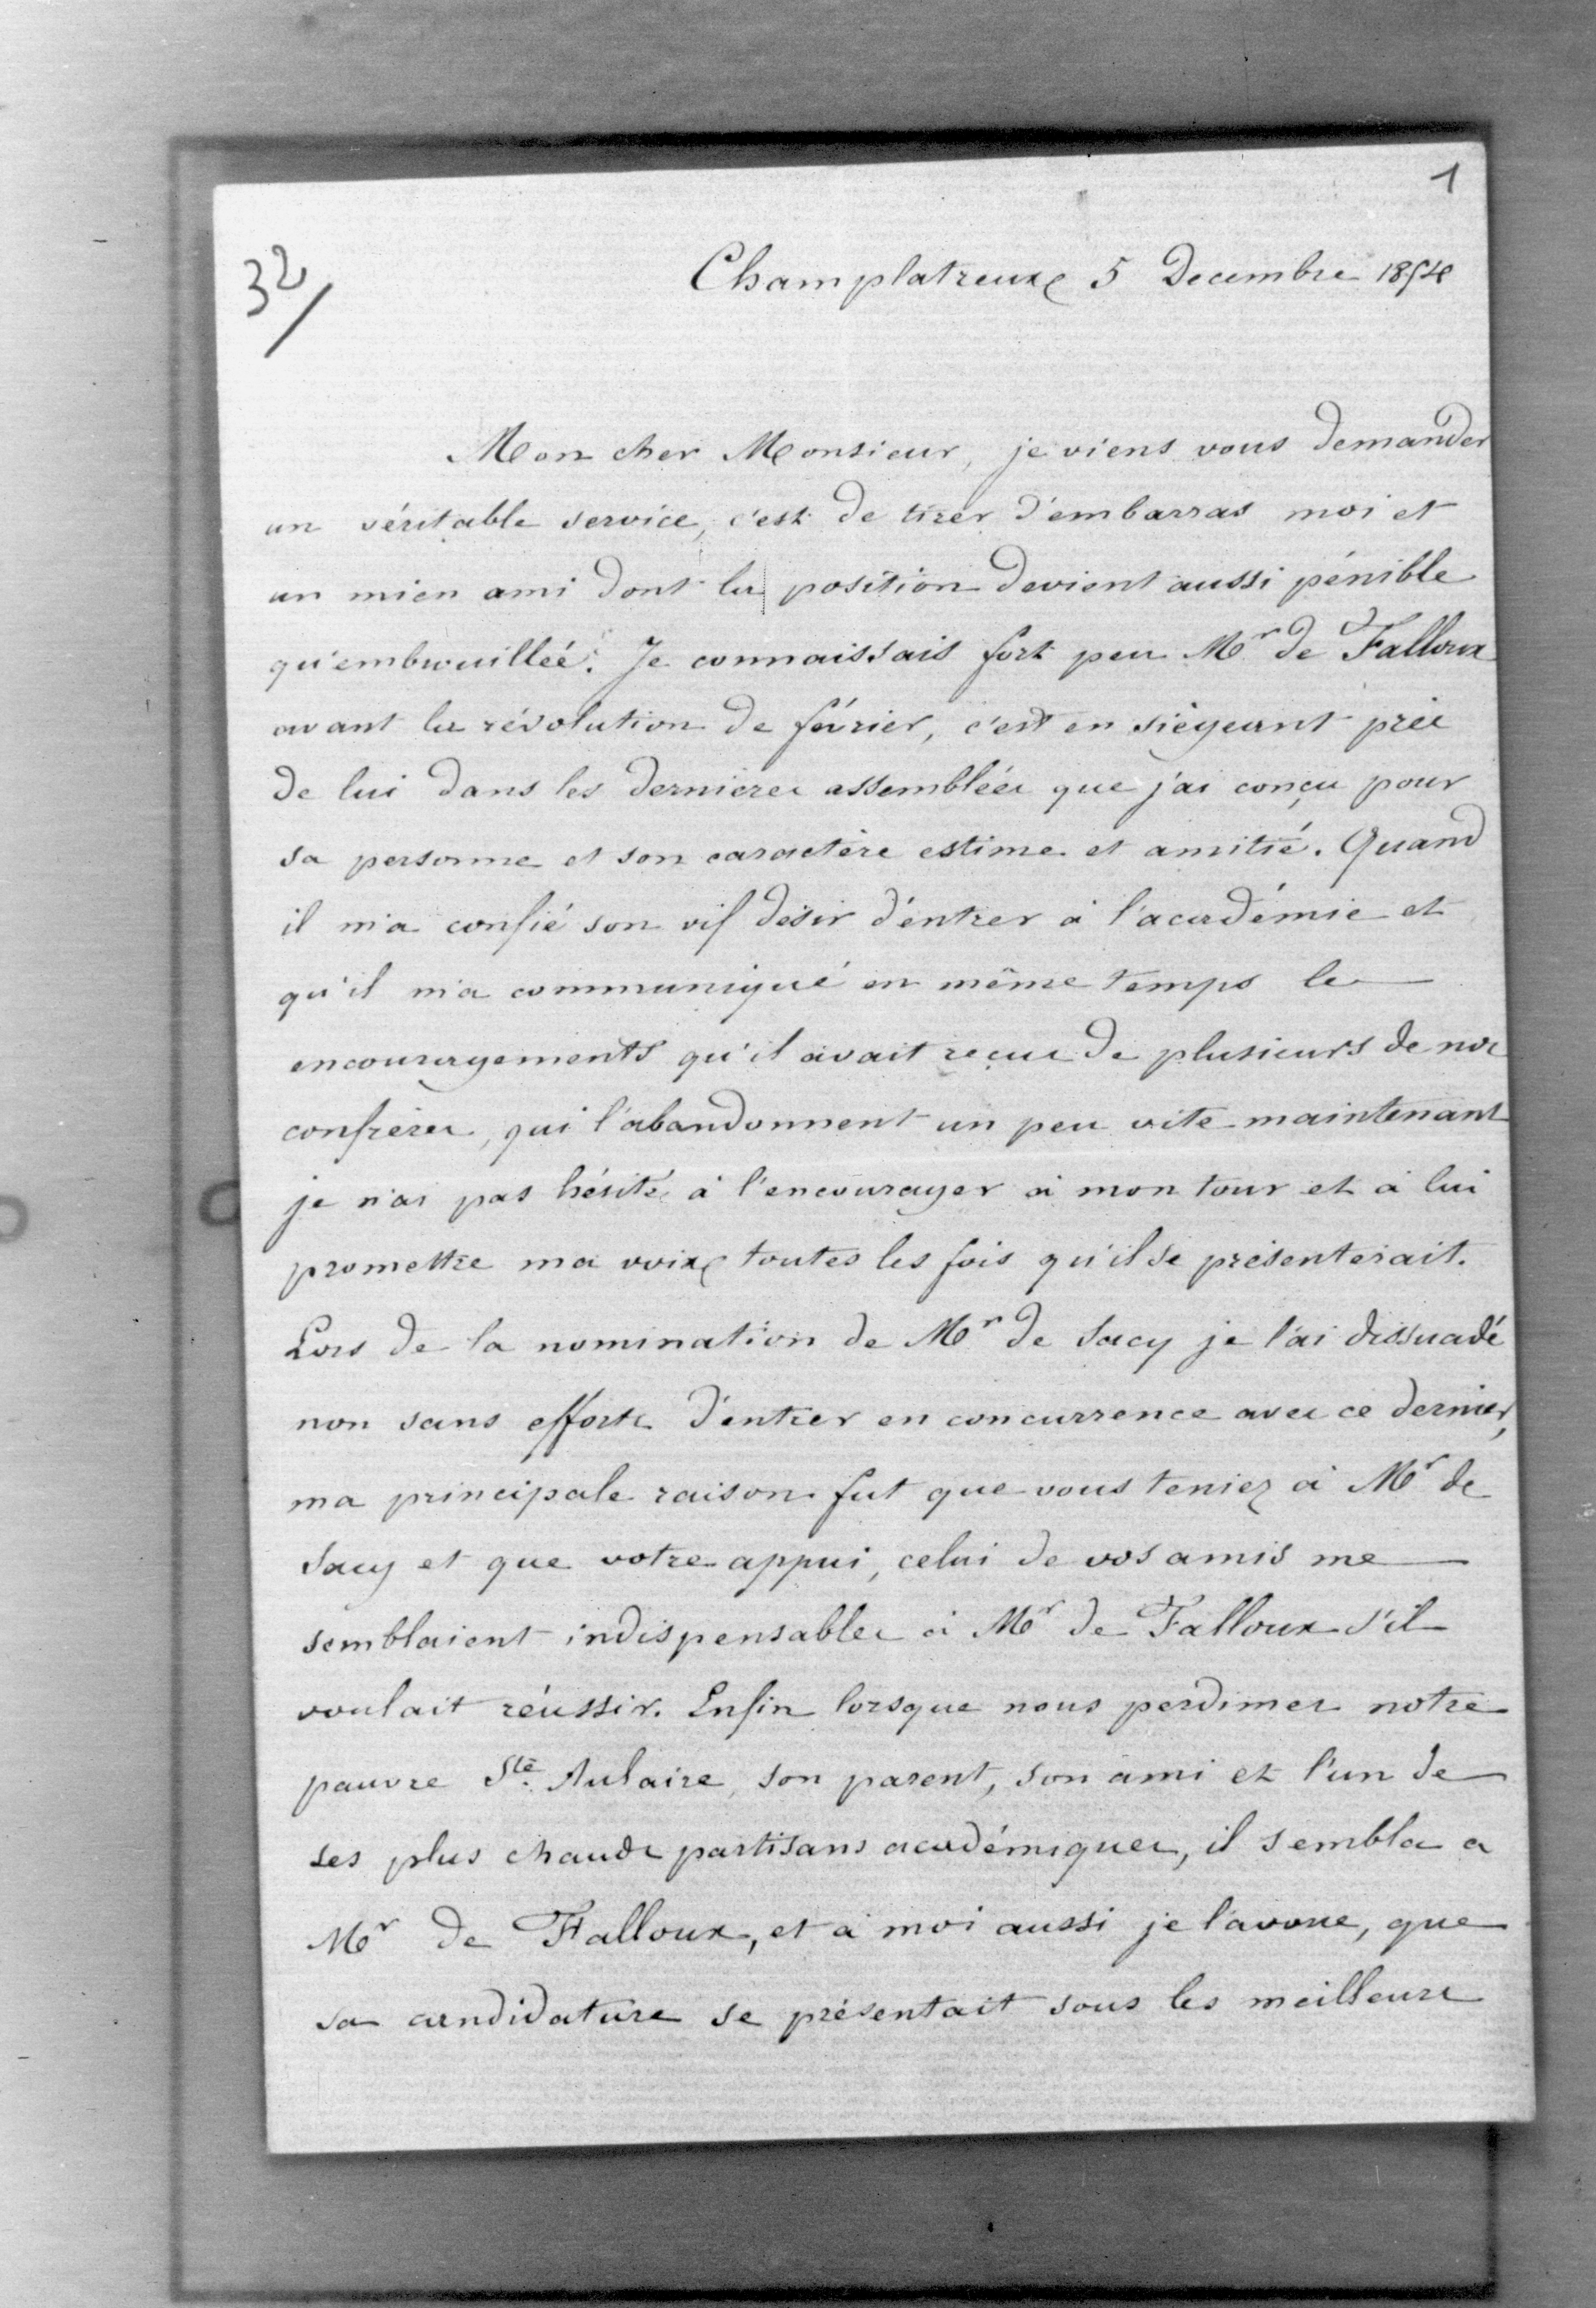 1
32/
Champlatreux 5 Decembre 1854
Mon cher Monsieur, je viens vous demander
un véritable service, c'est de tirer d'embarras moi et
un mien ami dont la position devient aussi pénible
qu'embrouillée. Je connaissais fort peu Mr de Falloux
avant la révolution de février, c'est en siégeant près
de lui dans les dernieres assemblées que j'ai conçu pour
sa personne et son caractère estime et amitié. Quand
il m'a confié son vif désir d'entrer à l'académie et
qu'il m'a communiqué en même temps les
encouragements qu'il avait reçus de plusieurs de nos
confrères, qui l'abandonnent un peu vite maintenant
je n'ai pas hésité à l'encourager à mon tour et à lui
promettre ma voix toutes les fois qu'il se présenterait.
Lors de la nomination de Mr de Sacy je l'ai dissuadé
non sans efforts d'entrer en concurrence avec ce dernier,
ma principale raison fut que vous teniez à Mr de
Sacy et que votre appui, celui de vos amis me
semblaient indispensables à Mr de Falloux s'il
voulait réussir. Enfin lorsque nous perdimes notre
pauvre Ste. Aulaire, son parent, son ami et l'un de
ses plus chauds partisans académiques, il sembla a
Mr de Falloux, et à moi aussi je l'avoue, que
sa candidature se présentait sous les meilleurs